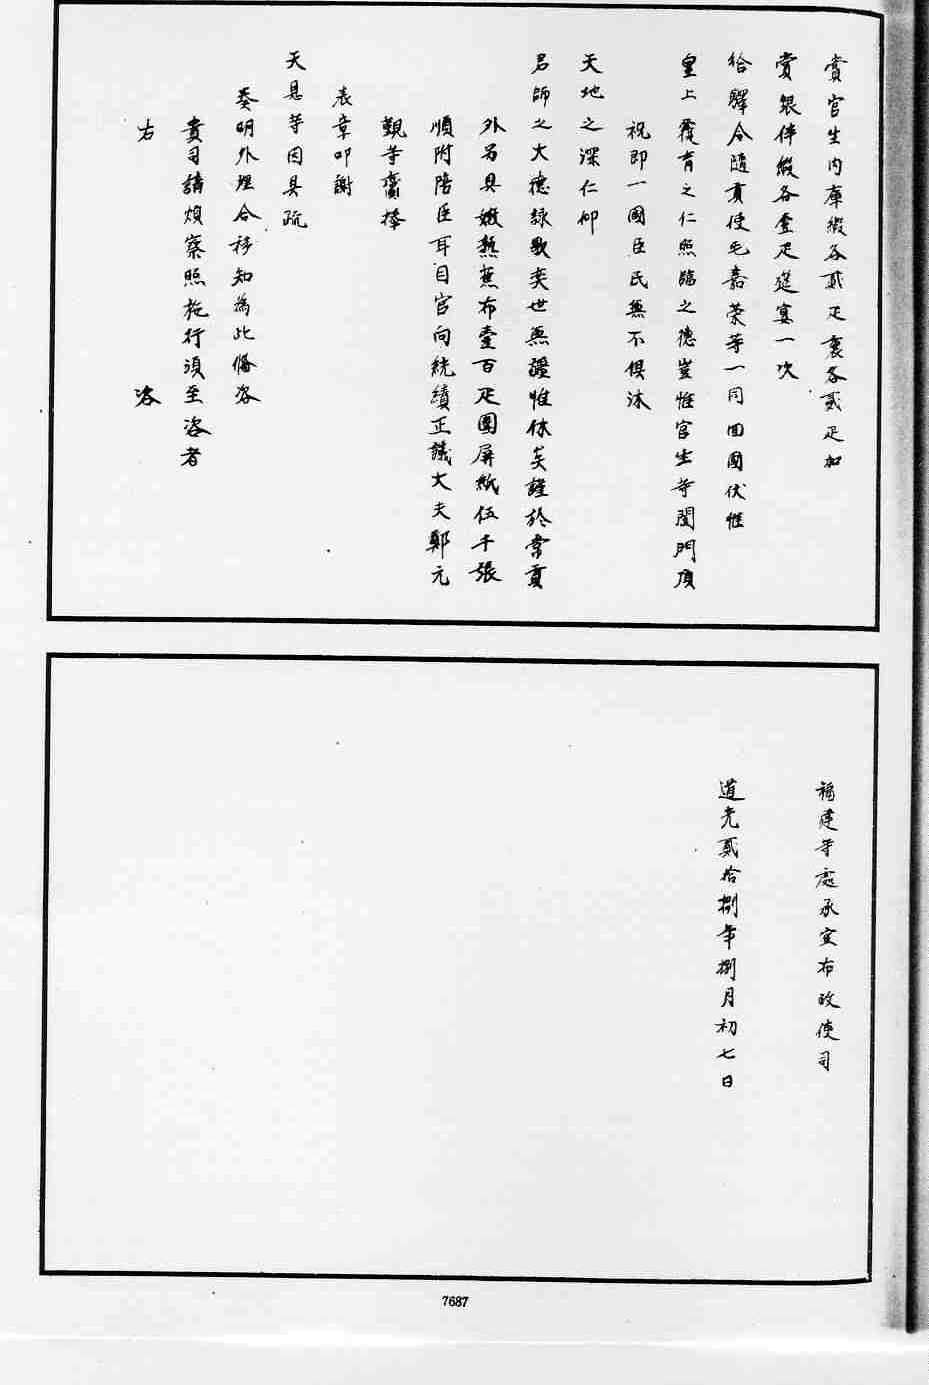 賞官生內庫緞各貳疋裏各貳疋加
賞跟伴緞各壹疋筵宴一次
給驛令隨貢使毛嘉榮等一同回國伏惟
皇上覆育之仁照臨之德豈惟官生等闔門頂
祝即一國臣民無不俱沐
天地之深仁仰
君師之大德詠歌奕世無疆惟休矣謹於常貢
外另具嫩熟蕉布壹百疋圍屏紙伍千張
順附陪臣耳目官向統績正議大夫鄭元
觀等齎捧
表章叩謝
天恩等因具疏
奏明外理合移知為此備咨
貴司請煩察照施行須至咨者
右 咨
福建等處承宣布政使司
道光貳拾捌年捌月初七日
7687